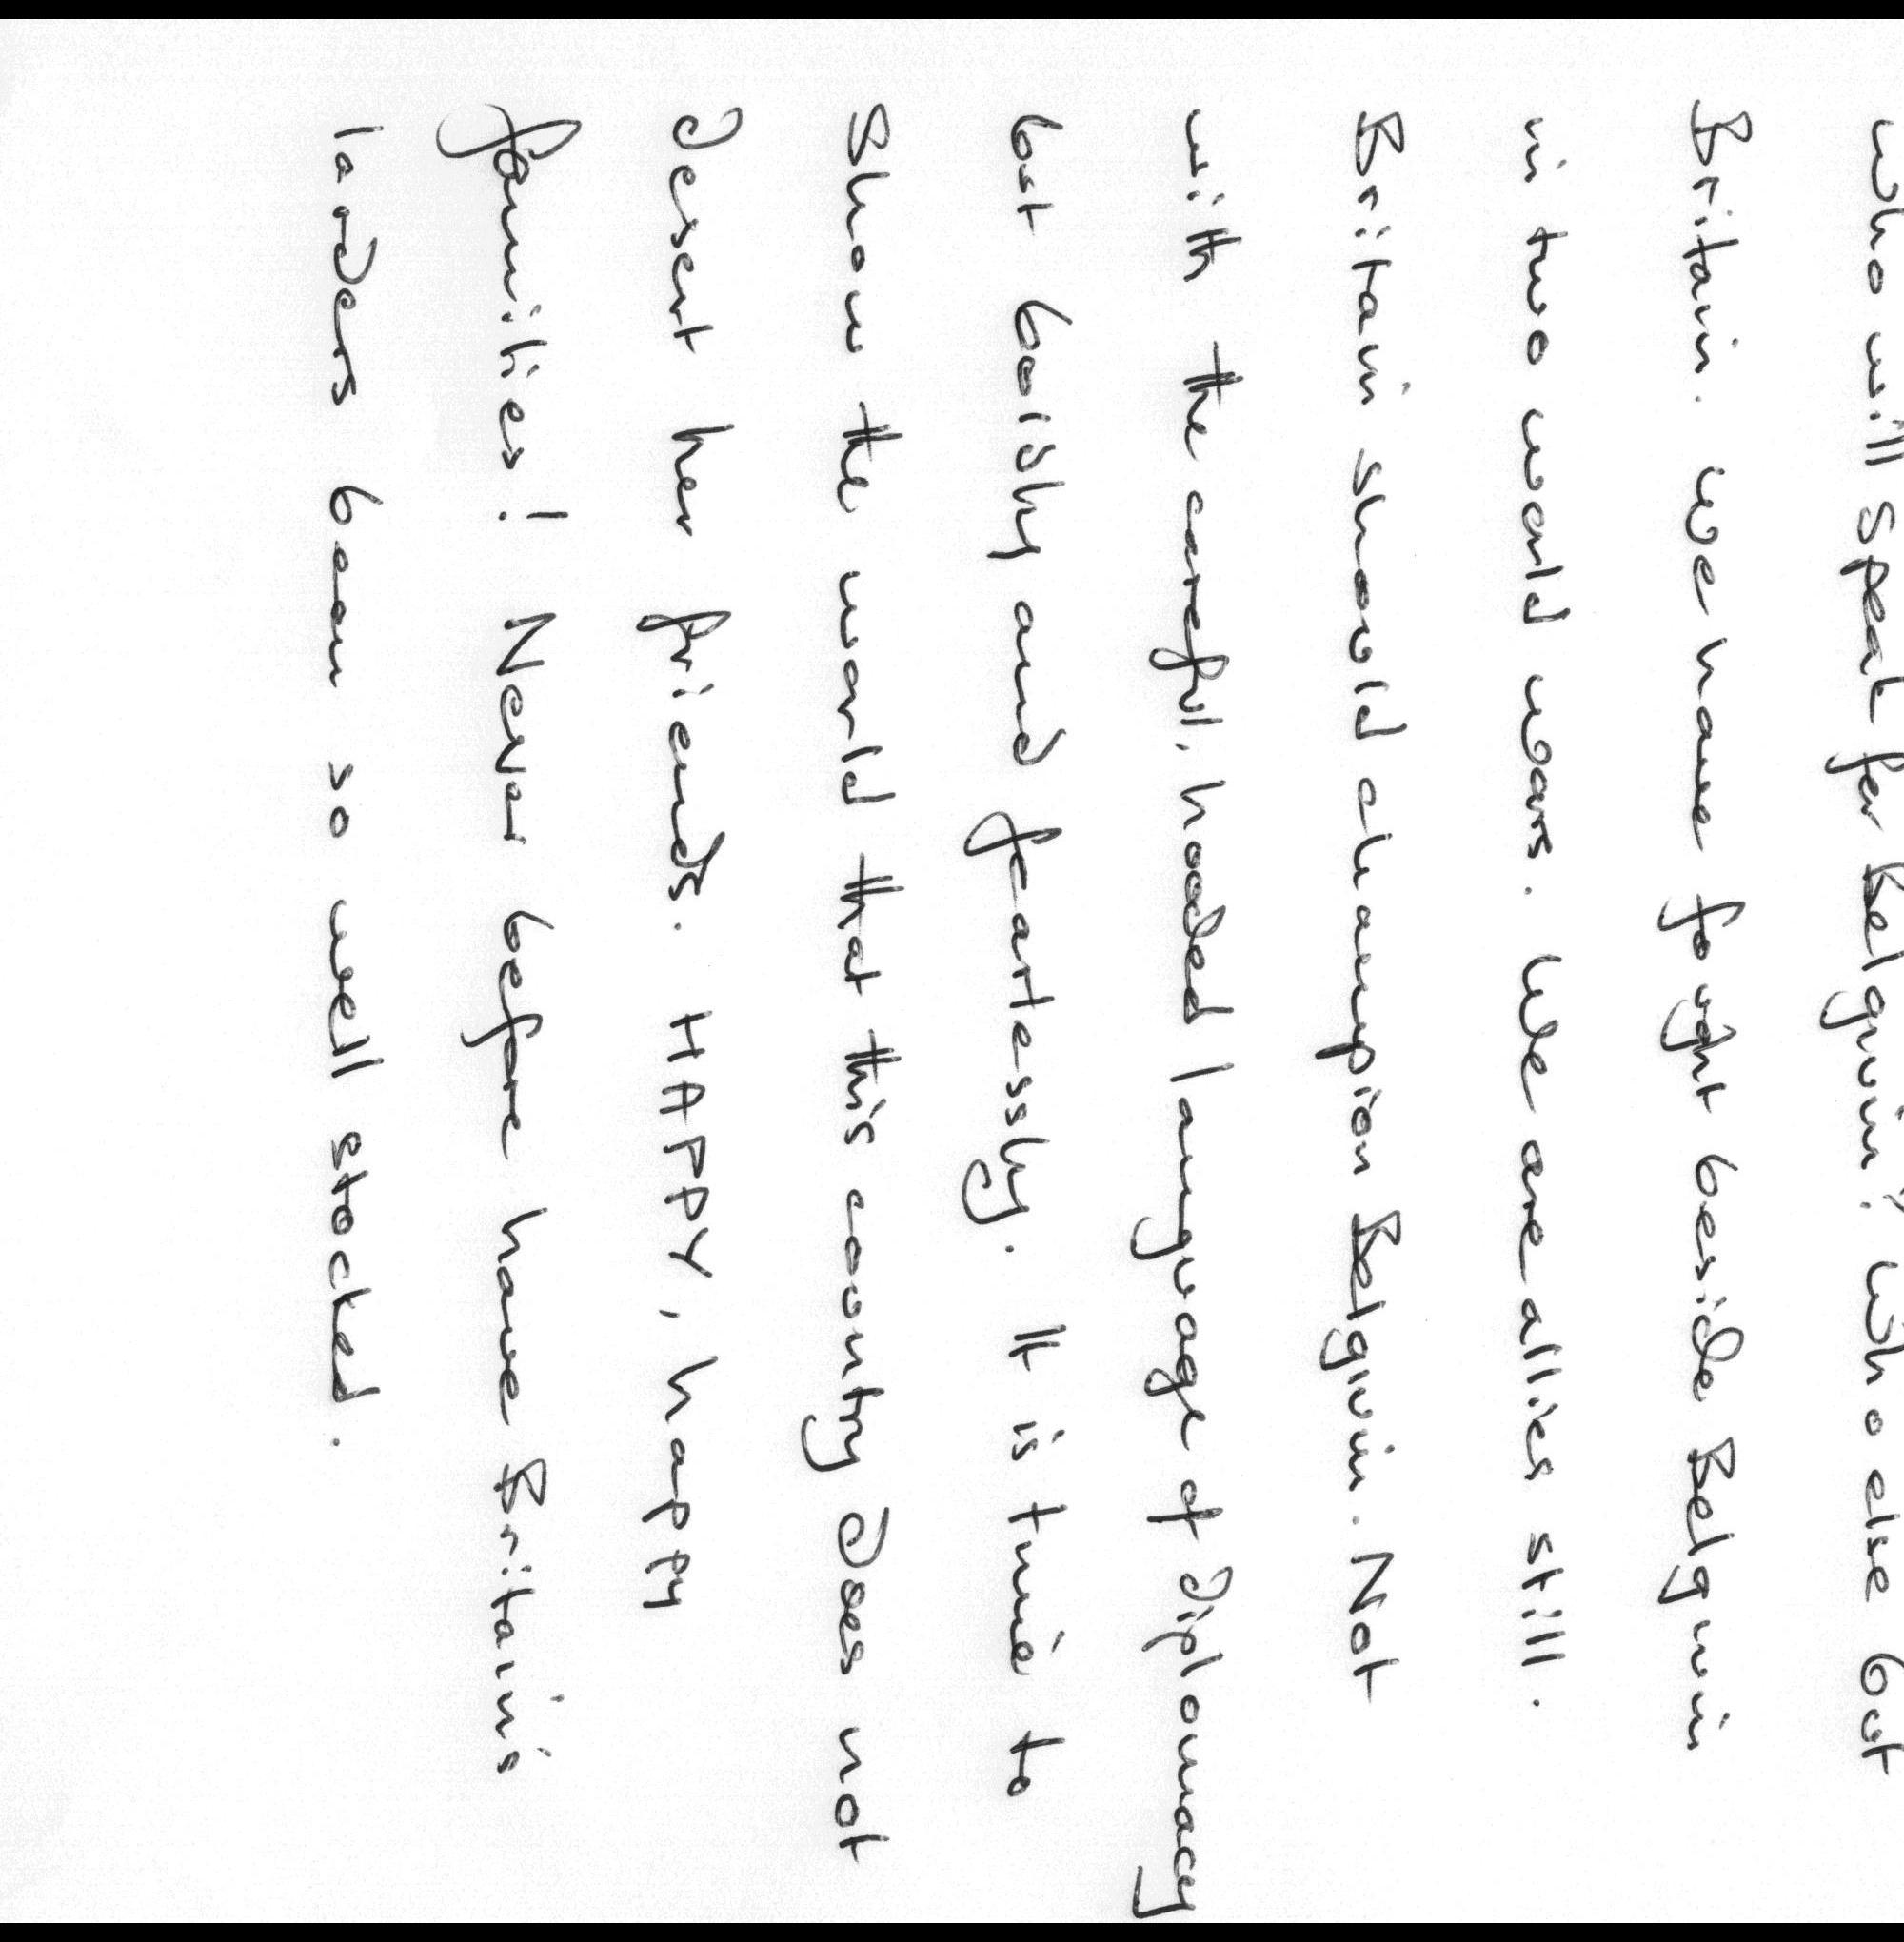 who will speak for Belguim? Who else but
Britain. We have fought beside Belguim
in two world wars. We are allies still.
Britain should champion Belguim. Not
with the careful, hooded language of diplomacy
but boldly and fearlessly. It is time to
Show the world that this country does not
desert her friends. HAPPY, happy
families! Never before have Britain's
larders been so well stocked.